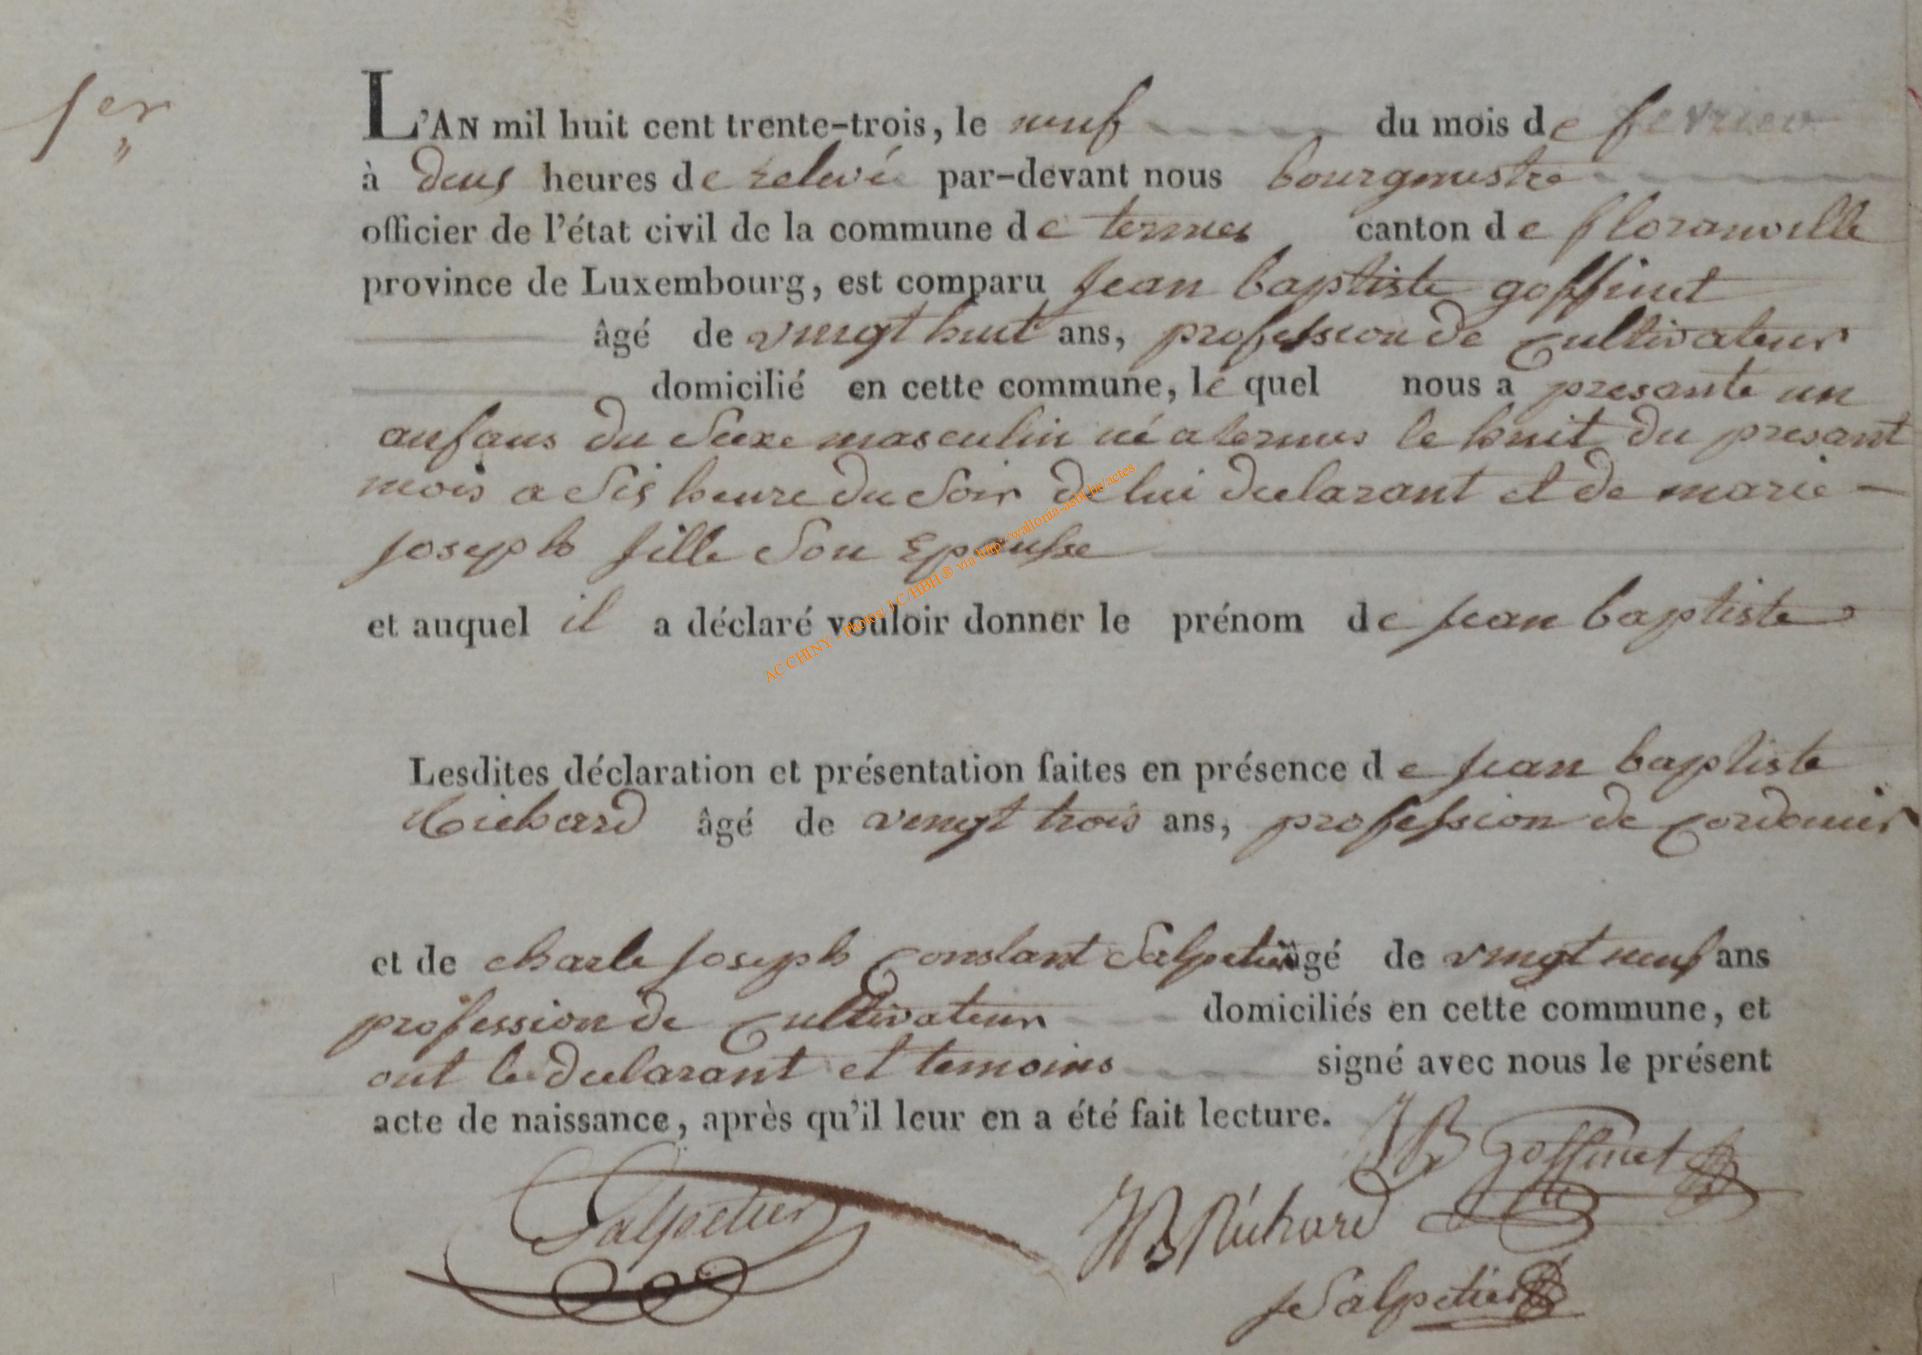 1er
L'AN mil huit cent trente-trois, le neuf du mois de fevrier
à deus heures de relevé par-devant nous bourgmestre
officier de l'état civil de la commune de termes canton de floranville
province de Luxembourg, est comparu jean baptiste goffinet
âgé de vingt huit ans, profession de cultivateur
domicilié en cette commune, le quel nous a presante un
anfans du Sexe masculin né a termes le huit du presant
mois a Sis heure du Soir de lui declarant et de marie
joseph fille Son Epousse
et auquel il a déclaré vouloir donner le prénom de jean baptiste
Lesdites déclaration et présentation faites en présence de jean baptiste
Richard âgé de vingt trois ans, profession de Cordonnier
et de charle joseph Constant Salpetier âgé de vingt neuf ans
profession de Cultivateur domiciliés en cette commune, et
ont le declarant et temoins signé avec nous le présent
acte de naissance, après qu'il leur en a été fait lecture.
JB Goffinet
Salpetier
JB Richard
Salpetier
AC CHINY - Photos LC/HBH® via http://wallonia-asbl.be/actes